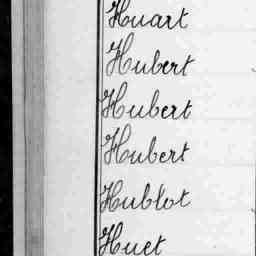 Huart
Hubert
Hubert
Hubert
Hublot
Huet